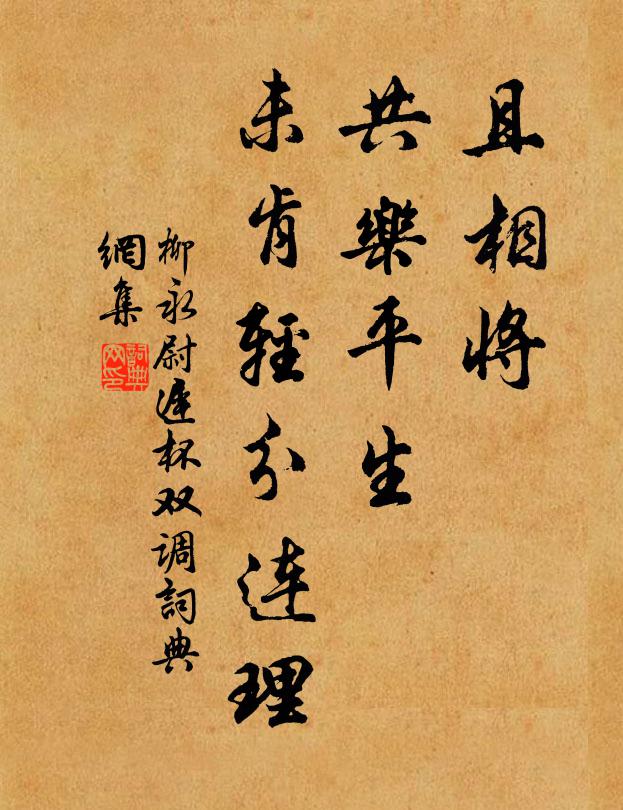 且相将
共樂平生
未肯輕分連理
柳永尉遲杯双调詞典
網集
詞典
网印